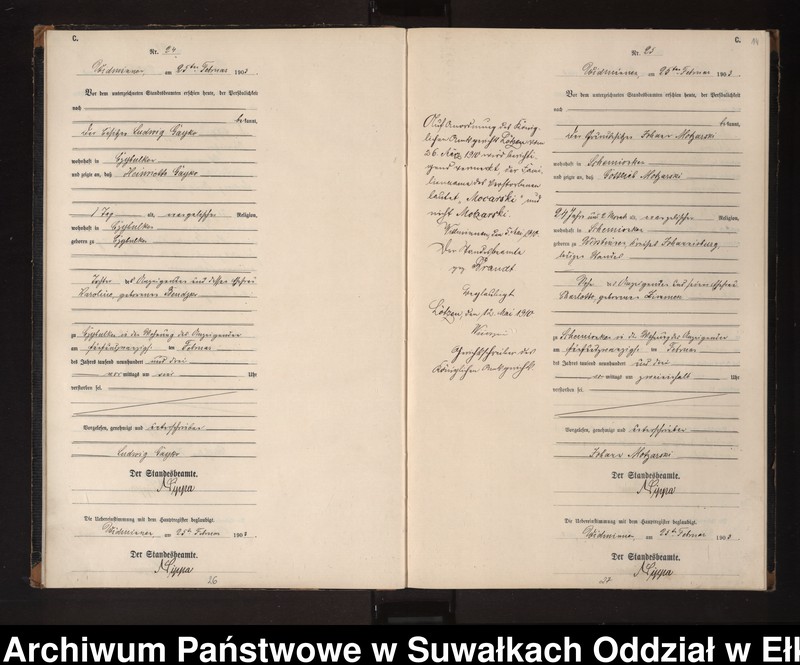 C.
Nr. 24
Widminnen am 25ten Februar 1903.
Vor dem unterzeichneten Standesbeamten erschien heute, der Persönlichkeit
nach
bekannt,
der Besitzer Ludwig
wohnhaft in
und zeigte an, daß Henriette
1 Tag alt, evangelischer Religion,
wohnhaft in
geboren zu
Tochter des Anzeigenden und dessen Ehefrau
Karoline, geborenen
zu in der Wohnung des Anzeigenden
am fünfundzwanzigsten Februar
des Jahres tausend neunhundert und drei
vormittags um vier Uhr
verstorben sei.
Vorgelesen, genehmigt und unterschrieben
Ludwig
Der Standesbeamte.
Lippa
Die Uebereinstimmung mit dem Hauptregister beglaubigt.
Widminnen am 25ten Februar 1903
Der Standesbeamte.
Lippa
26
C.
Nr. 25
Widminnen, am 25ten Februar 1903.
Vor dem unterzeichneten Standesbeamten erschien heute, der Persönlichkeit
nach
bekannt,
der Grundbesitzer Johann Motzarski
wohnhaft in
und zeigte an, daß Gottlieb Motzarski
24 Jahr und 2 Monat alt, evangelischer Religion,
wohnhaft in
geboren zu Kreises Johannisburg
Sohn des Anzeigenden und seiner Ehefrau
Charlotte, geborenen
zu in der Wohnung des Anzeigenden
am fünfundzwanzigsten Februar
des Jahres tausend neunhundert und drei
vormittags um Uhr
verstorben sei.
Vorgelesen, genehmigt und unterschrieben
Johann Motzarski
Der Standesbeamte.
Lippa
Die Uebereinstimmung mit dem Hauptregister beglaubigt.
Widminnen, am 25ten Februar 1903
Der Standesbeamte.
Lippa
27
Auf Anordnung des König-
lichen Amtsgerichts Lötzen vom
26 1910 wird berichti-
gend vermerkt, daß der Fami-
lienname des Verstorbenen
lautet „Mocarski“ und
nicht Motzarski.
Widminnen, den 1910.
Der Standesbeamte
gez Brandt
Beglaubigt
Lötzen, den 12. Mai 1910
Gerichtsschreiber des
Königlichen Amtsgerichts
Archiwum Państwowe w Suwałkach Oddział w Ełk